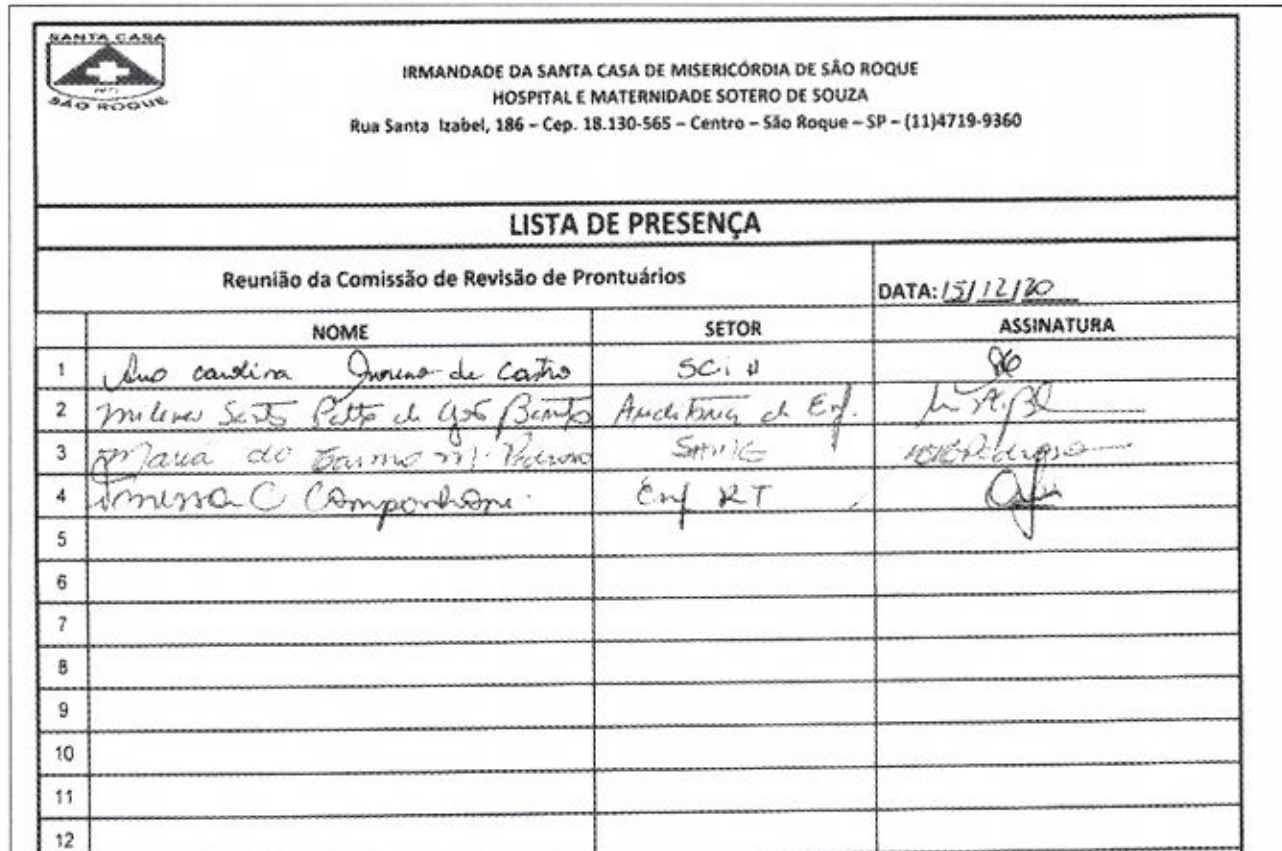 SANTA CASA
SÃO ROQUE
IRMANDADE DA SANTA CASA DE MISERICÓRDIA DE SÃO ROQUE
HOSPITAL E MATERNIDADE SOTERO DE SOUZA
Rua Santa Izabel, 186 – Cep. 18.130-565 – Centro – São Roque – SP – (11)4719-9360
LISTA DE PRESENÇA
Reunião da Comissão de Revisão de Prontuários
DATA: 15/12/20
NOME SETOR ASSINATURA
1 Ana carolina de Castro SCiH
2 Milena de Auditoria de Enf.
3 Maria do Carmo M. Pedroso SAME
4 C Enf RT
5
6
7
8
9
10
11
12